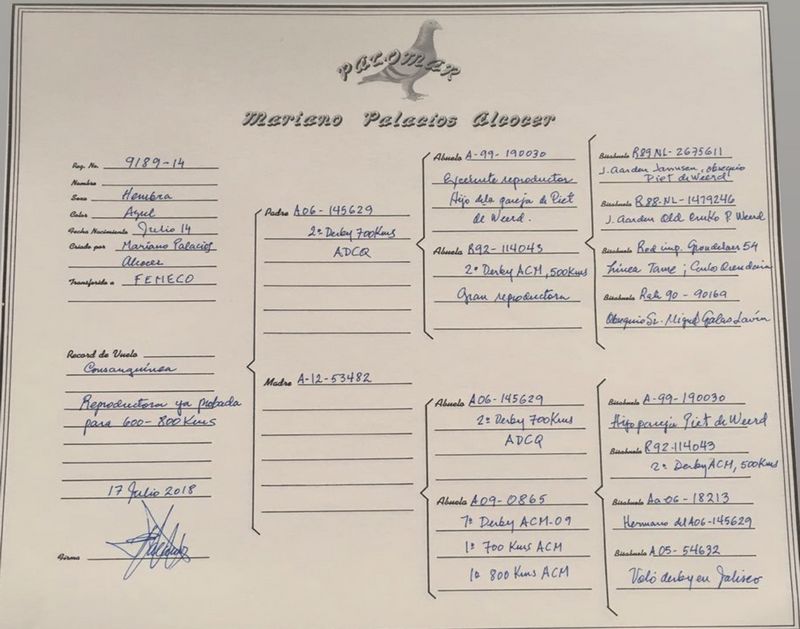 PALOMAR
Mariano Palacios Alcocer
Reg. No. 9189-14
Nombre
Sexo Hembra
Color Azul
Fecha Nacimiento Julio 14
Criado por Mariano Palacios
Alcocer
Transferido a FEMECO
Record de Vuelo
Consanguínea
Reproductora ya probada
para 600-800 Kms
17 Julio 2018
Firma
Padre A06-145629
2º Derby 700Kms
ADCQ
Madre A-12-53482
Abuelo A-99-190030
Excelente reproductor
Hijo de la pareja de Piet
de Weerd.
Abuela R92-114043
2º Derby ACM, 500Kms
Gran reproductora
Abuelo A06-145629
2º Derby 700 Kms
ADCQ
Abuela A09-0865
7º Derby ACM-09
1º 700 Kms ACM
1º 800 Kms ACM
Bisabuelo R89 NL-2675611
J. Aarden Janssen, obsequio
Piet de Weerd
Bisabuela R88-NL-1479246
J. Aarden Old P. Weerd
Bisabuelo Red imp. 54
Línea
Bisabuela 90-90169
Obsequio Sr. Miguel Galas Lavín
Bisabuelo A-99-190030
Hijo pareja Piet de Weerd
Bisabuela R92-114043
2º Derby ACM, 500Kms
Bisabuelo Aa06-18213
Hermano del A06-145629
Bisabuela A05-54632
Voló derby en Jalisco